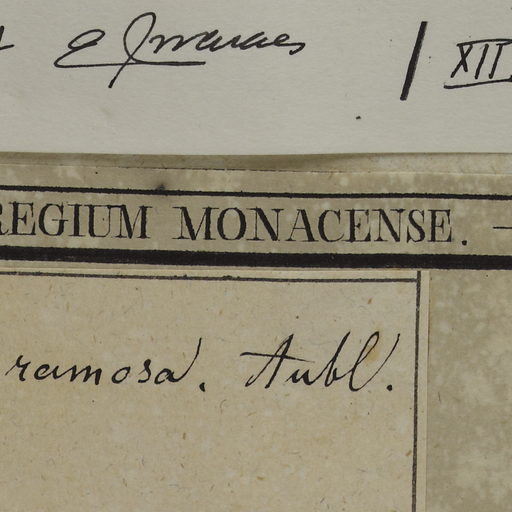 XII
REGIUM MONACENSE. —
ramosa. Aubl.